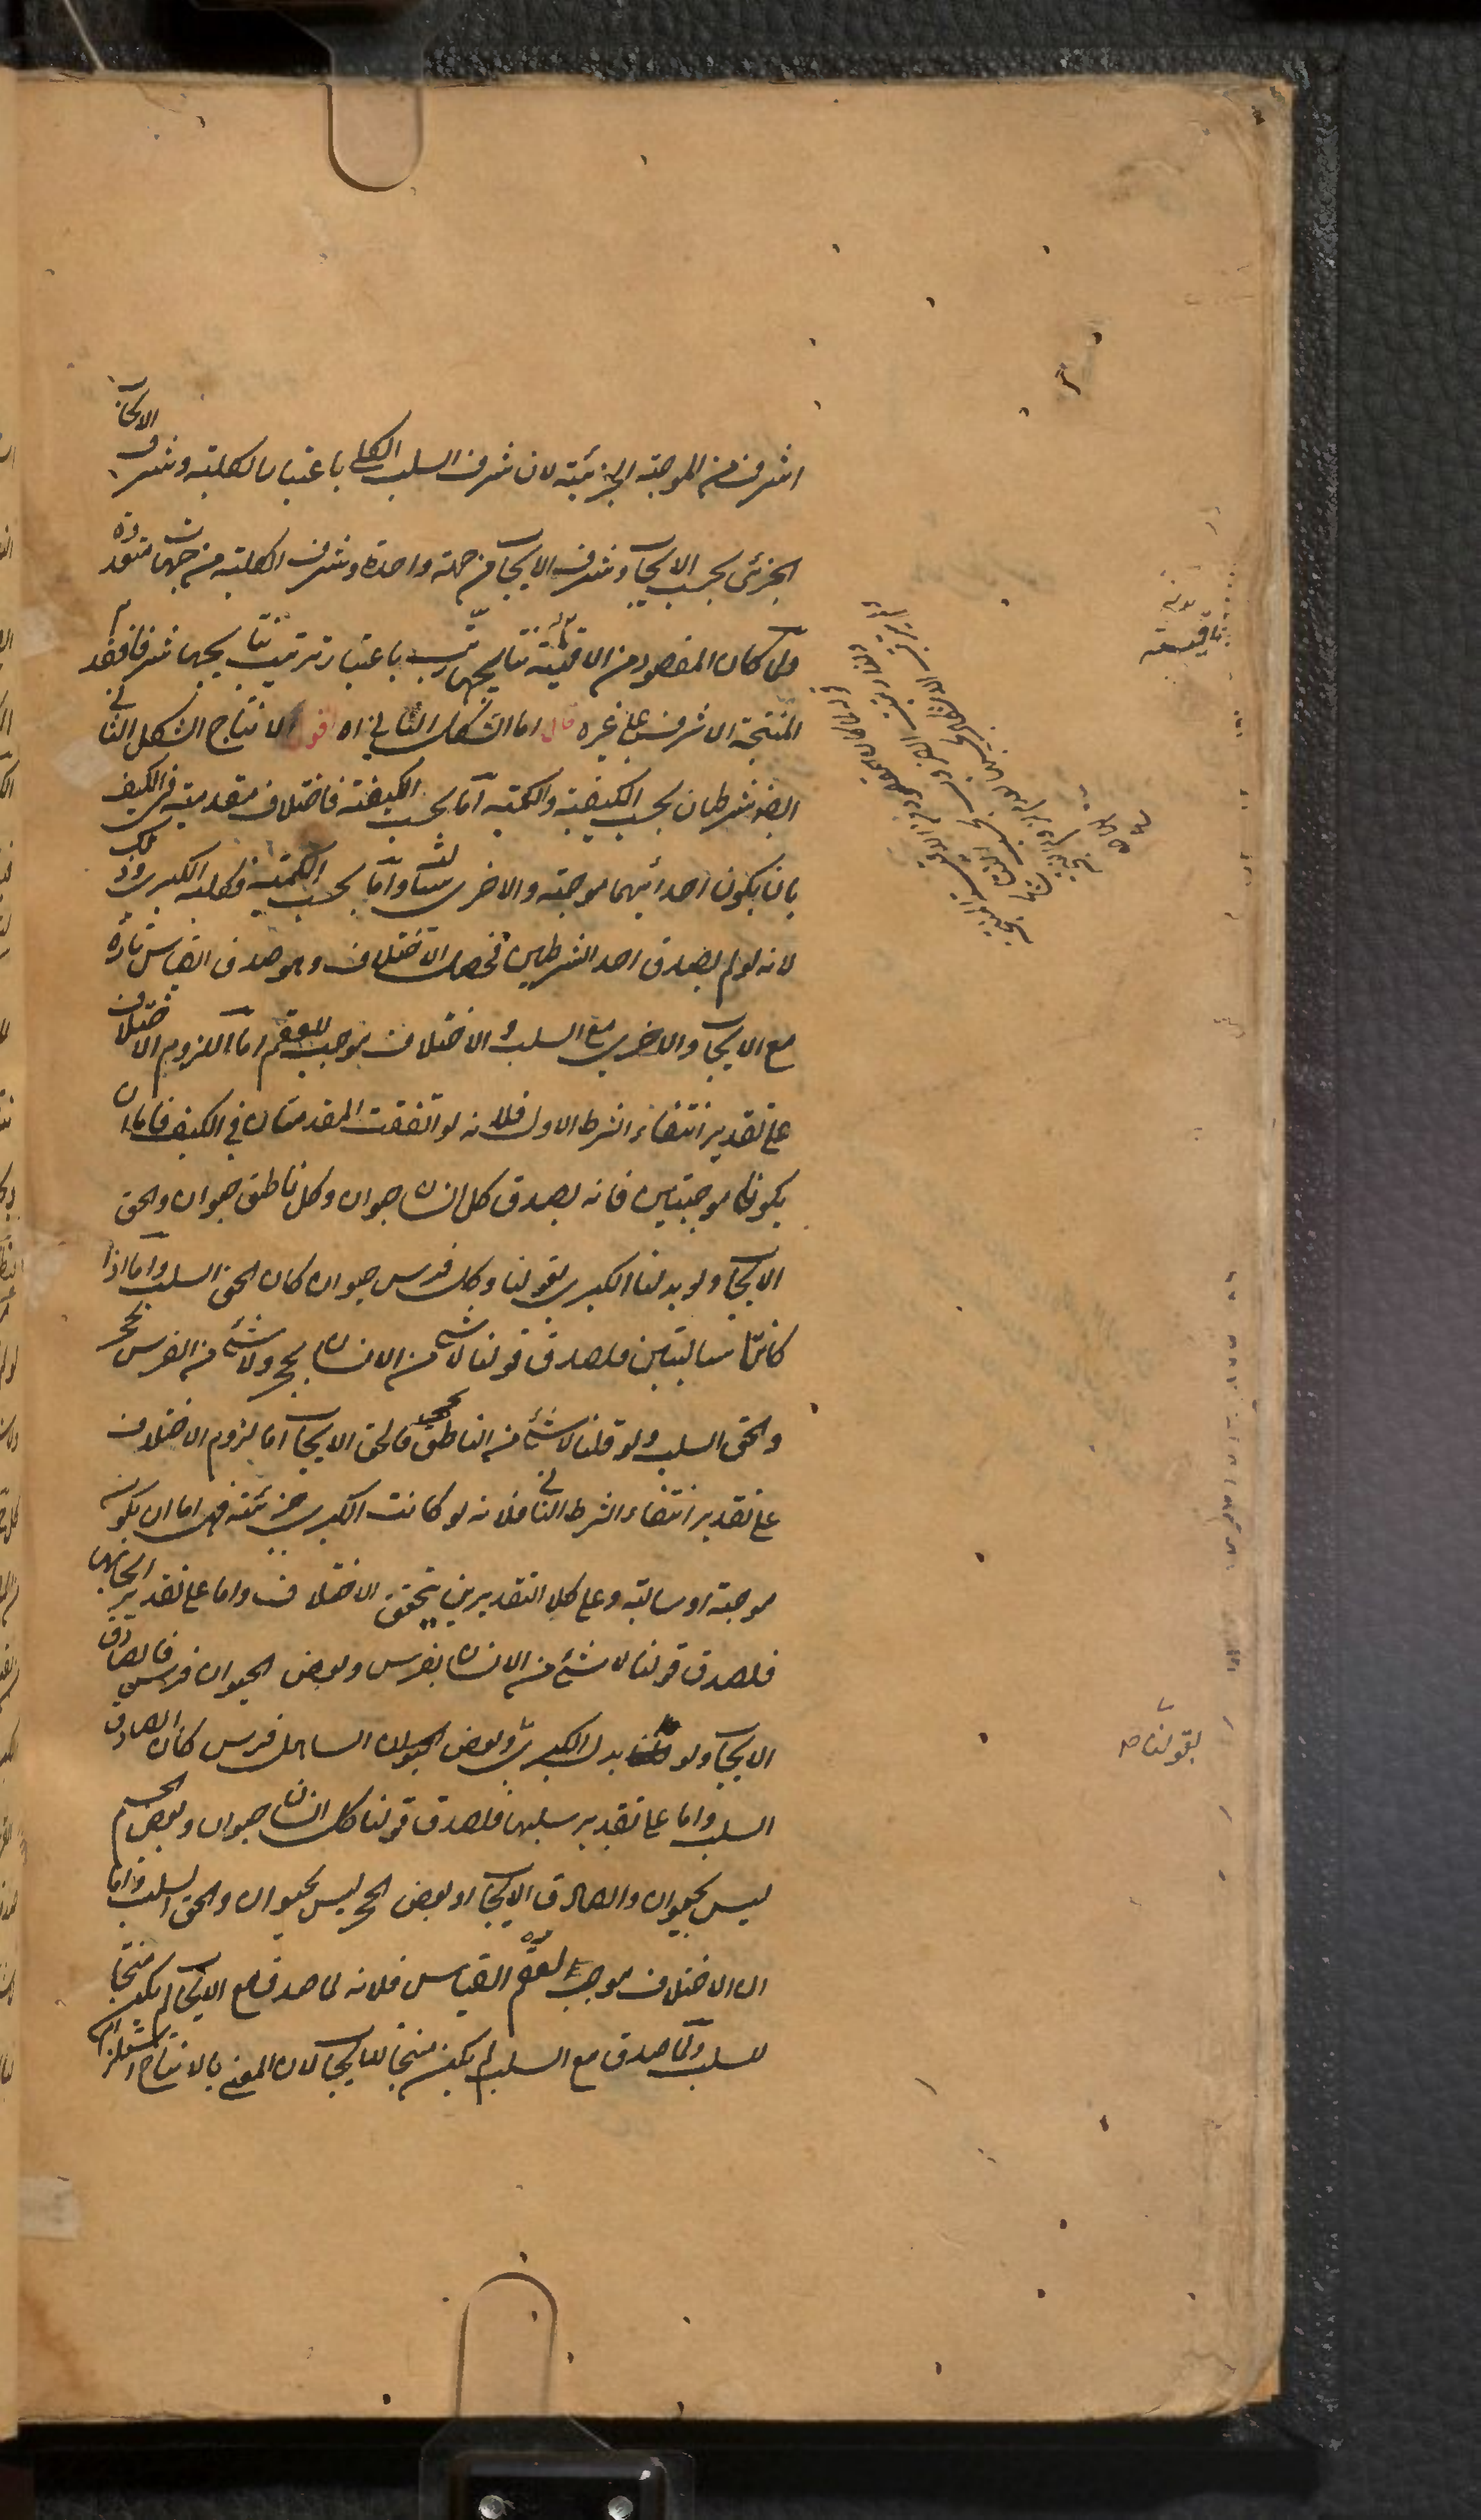 اشرف من الموجبة الجزئية لان شرف السلب الكلي باعتبار الكلية وشرف الايجاب
الجزئي بحسب الايجاب وشرف الايجاب من جهة واحدة وشرف الكلية من جهات متعددة
ولما كان المقصود من الاقيسة نتايجها رتب باعتبار ترتيب نتايجها شرفا فقدم
المنتجة الاشرف على غيره قال اما الشكل الثاني اه اقول لانتاج الشكل الثاني
ايضا شرطان بحسب الكيفية والكمية اما بحسب الكيفية فاختلاف مقدميته في الكيف
بان يكون احدايهما موجبة والاخرى سالبة واما بحسب الكمية فكلية الكبرى وذلك
لانه لو لم يصدق احد الشرطين فحصل الاختلاف وهو صدق القياس تارة
مع الايجاب والاخرى مع السلب والاختلاف موجب للعقم اما لزوم الاختلاف
على تقدير انتفاء الشرط الاول فلانه لو اتفقت المقدمتان في الكيف فاما ان
يكونا موجبتين فانه يصدق كل انسان حيوان وكل ناطق حيوان والحق
الايجاب ولو بدلنا الكبرى بقولنا وكل فرس حيوان كان الحق السلب واما اذا
كانتا سالبتين فلصدق قولنا لا شئ من الانسان بحجر ولا شئ من الفرس بحجر
والحق السلب ولو قلنا لا شئ من الناطق بحجر فالحق الايجاب اما لزوم الاختلاف
على تقدير انتفاء الشرط الثاني فلانه لو كانت الكبرى جزئية فهي اما ان يكون
موجبة او سالبة وعلى كلا التقديرين يتحقق الاختلاف واما على تقدير ايجابها
فلصدق قولنا لا شئ من الانسان بفرس وبعض الحيوان فرس فالصادق
الايجاب ولو بدل الكبرى وبعض الصاهل فرس كان الصادق
السلب واما على تقدير سلبها فلصدق قولنا كل انسان حيوان وبعض الجسم
ليس بحيوان والصادق الايجاب او بعض الحجر ليس بحيوان والحق السلب واما
ان الاختلاف موجب لعقم القياس فلانه لما صدق مع الايجاب لم يكن منتجا
للسلب ولما صدق مع السلب لم يكن منتجا للايجاب لان المعني بالانتاج استلزام
بقولنا صح